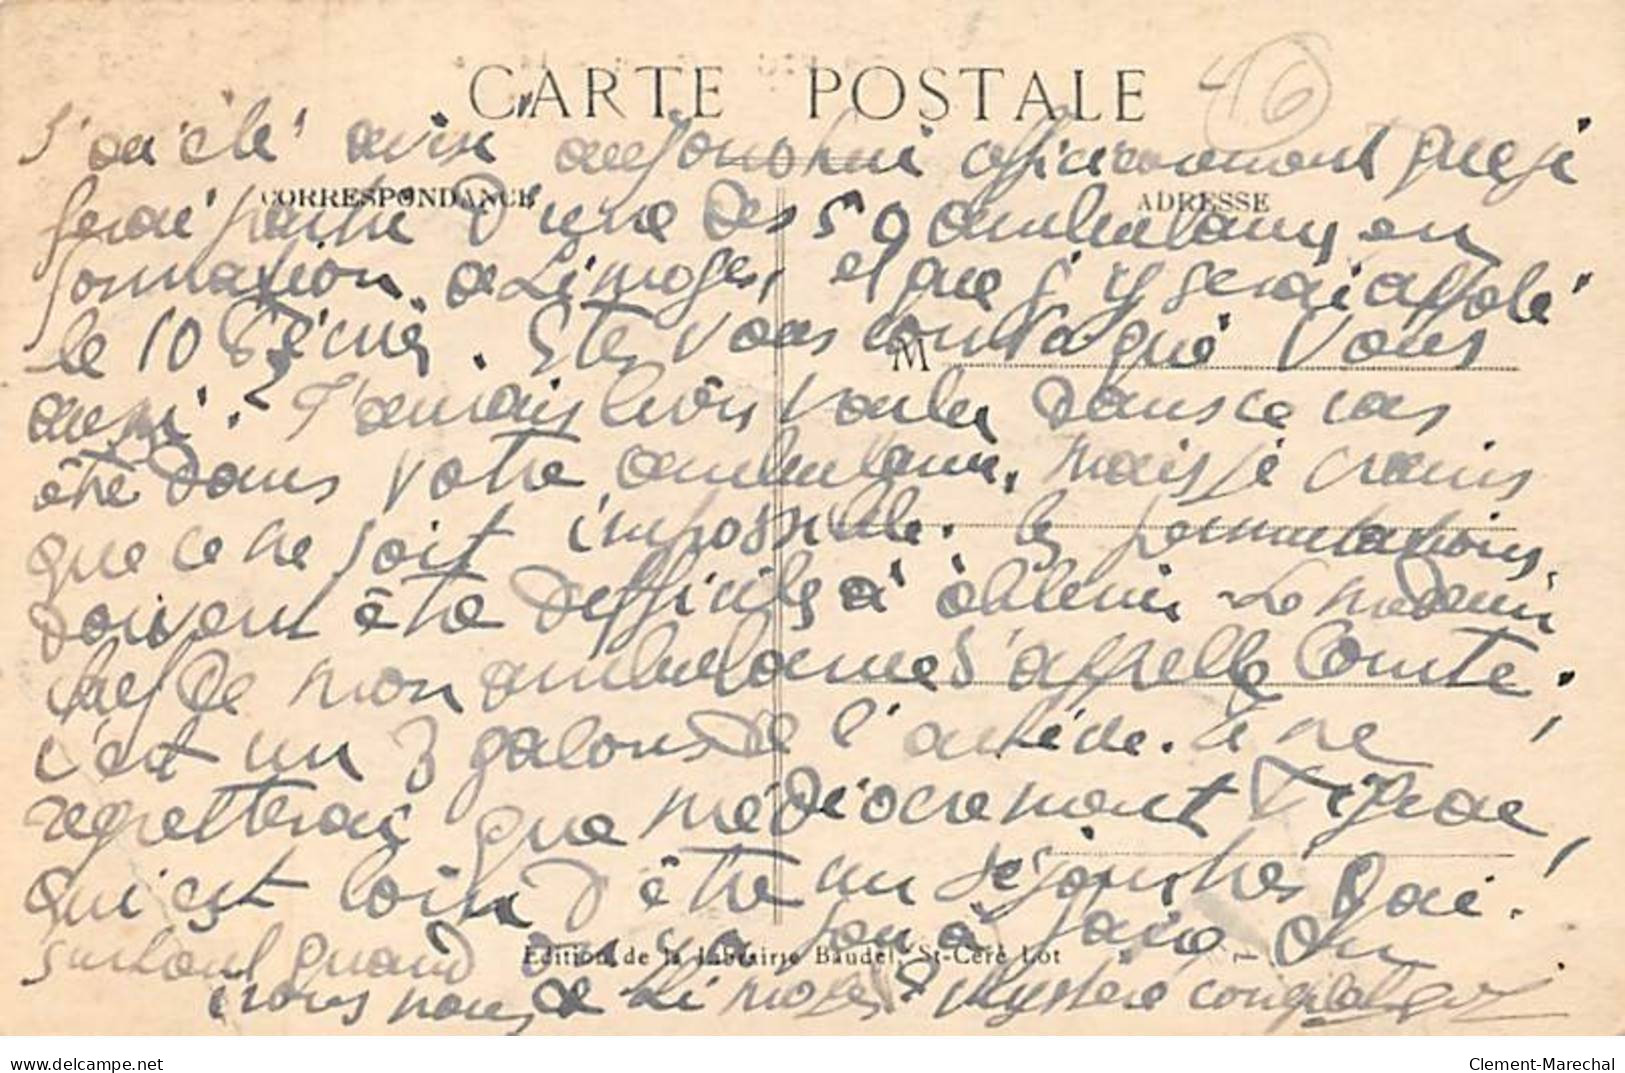 CARTE POSTALE
46
J'ai été avisé aujourd'hui officieusement que je
CORRESPONDANCE
ADRESSE
ferai partie d'une des 50 ambulances en
formation de Limoges, et que j'y serai appelé
le 10 Février. Etes vous convoqué vous
M
aussi ? J'aurais bien voulu dans ce cas
être dans votre ambulance, mais je crains
que ce ne soit impossible. les permutations
doivent être difficiles à obtenir. Le medecin
chef de mon ambulance s'appelle Comte,
c'est un 3 galons de l'active. Je ne
regretterai que médiocrement Figeac,
qui est loin d'être un séjour très gai.
surtout quand on n'a rien à faire. Où
Edition de la Librairie Baudel, St-Céré Lot
irons nous de Limoges ? Mystère complet
delcampe.net
Clement-Marechal